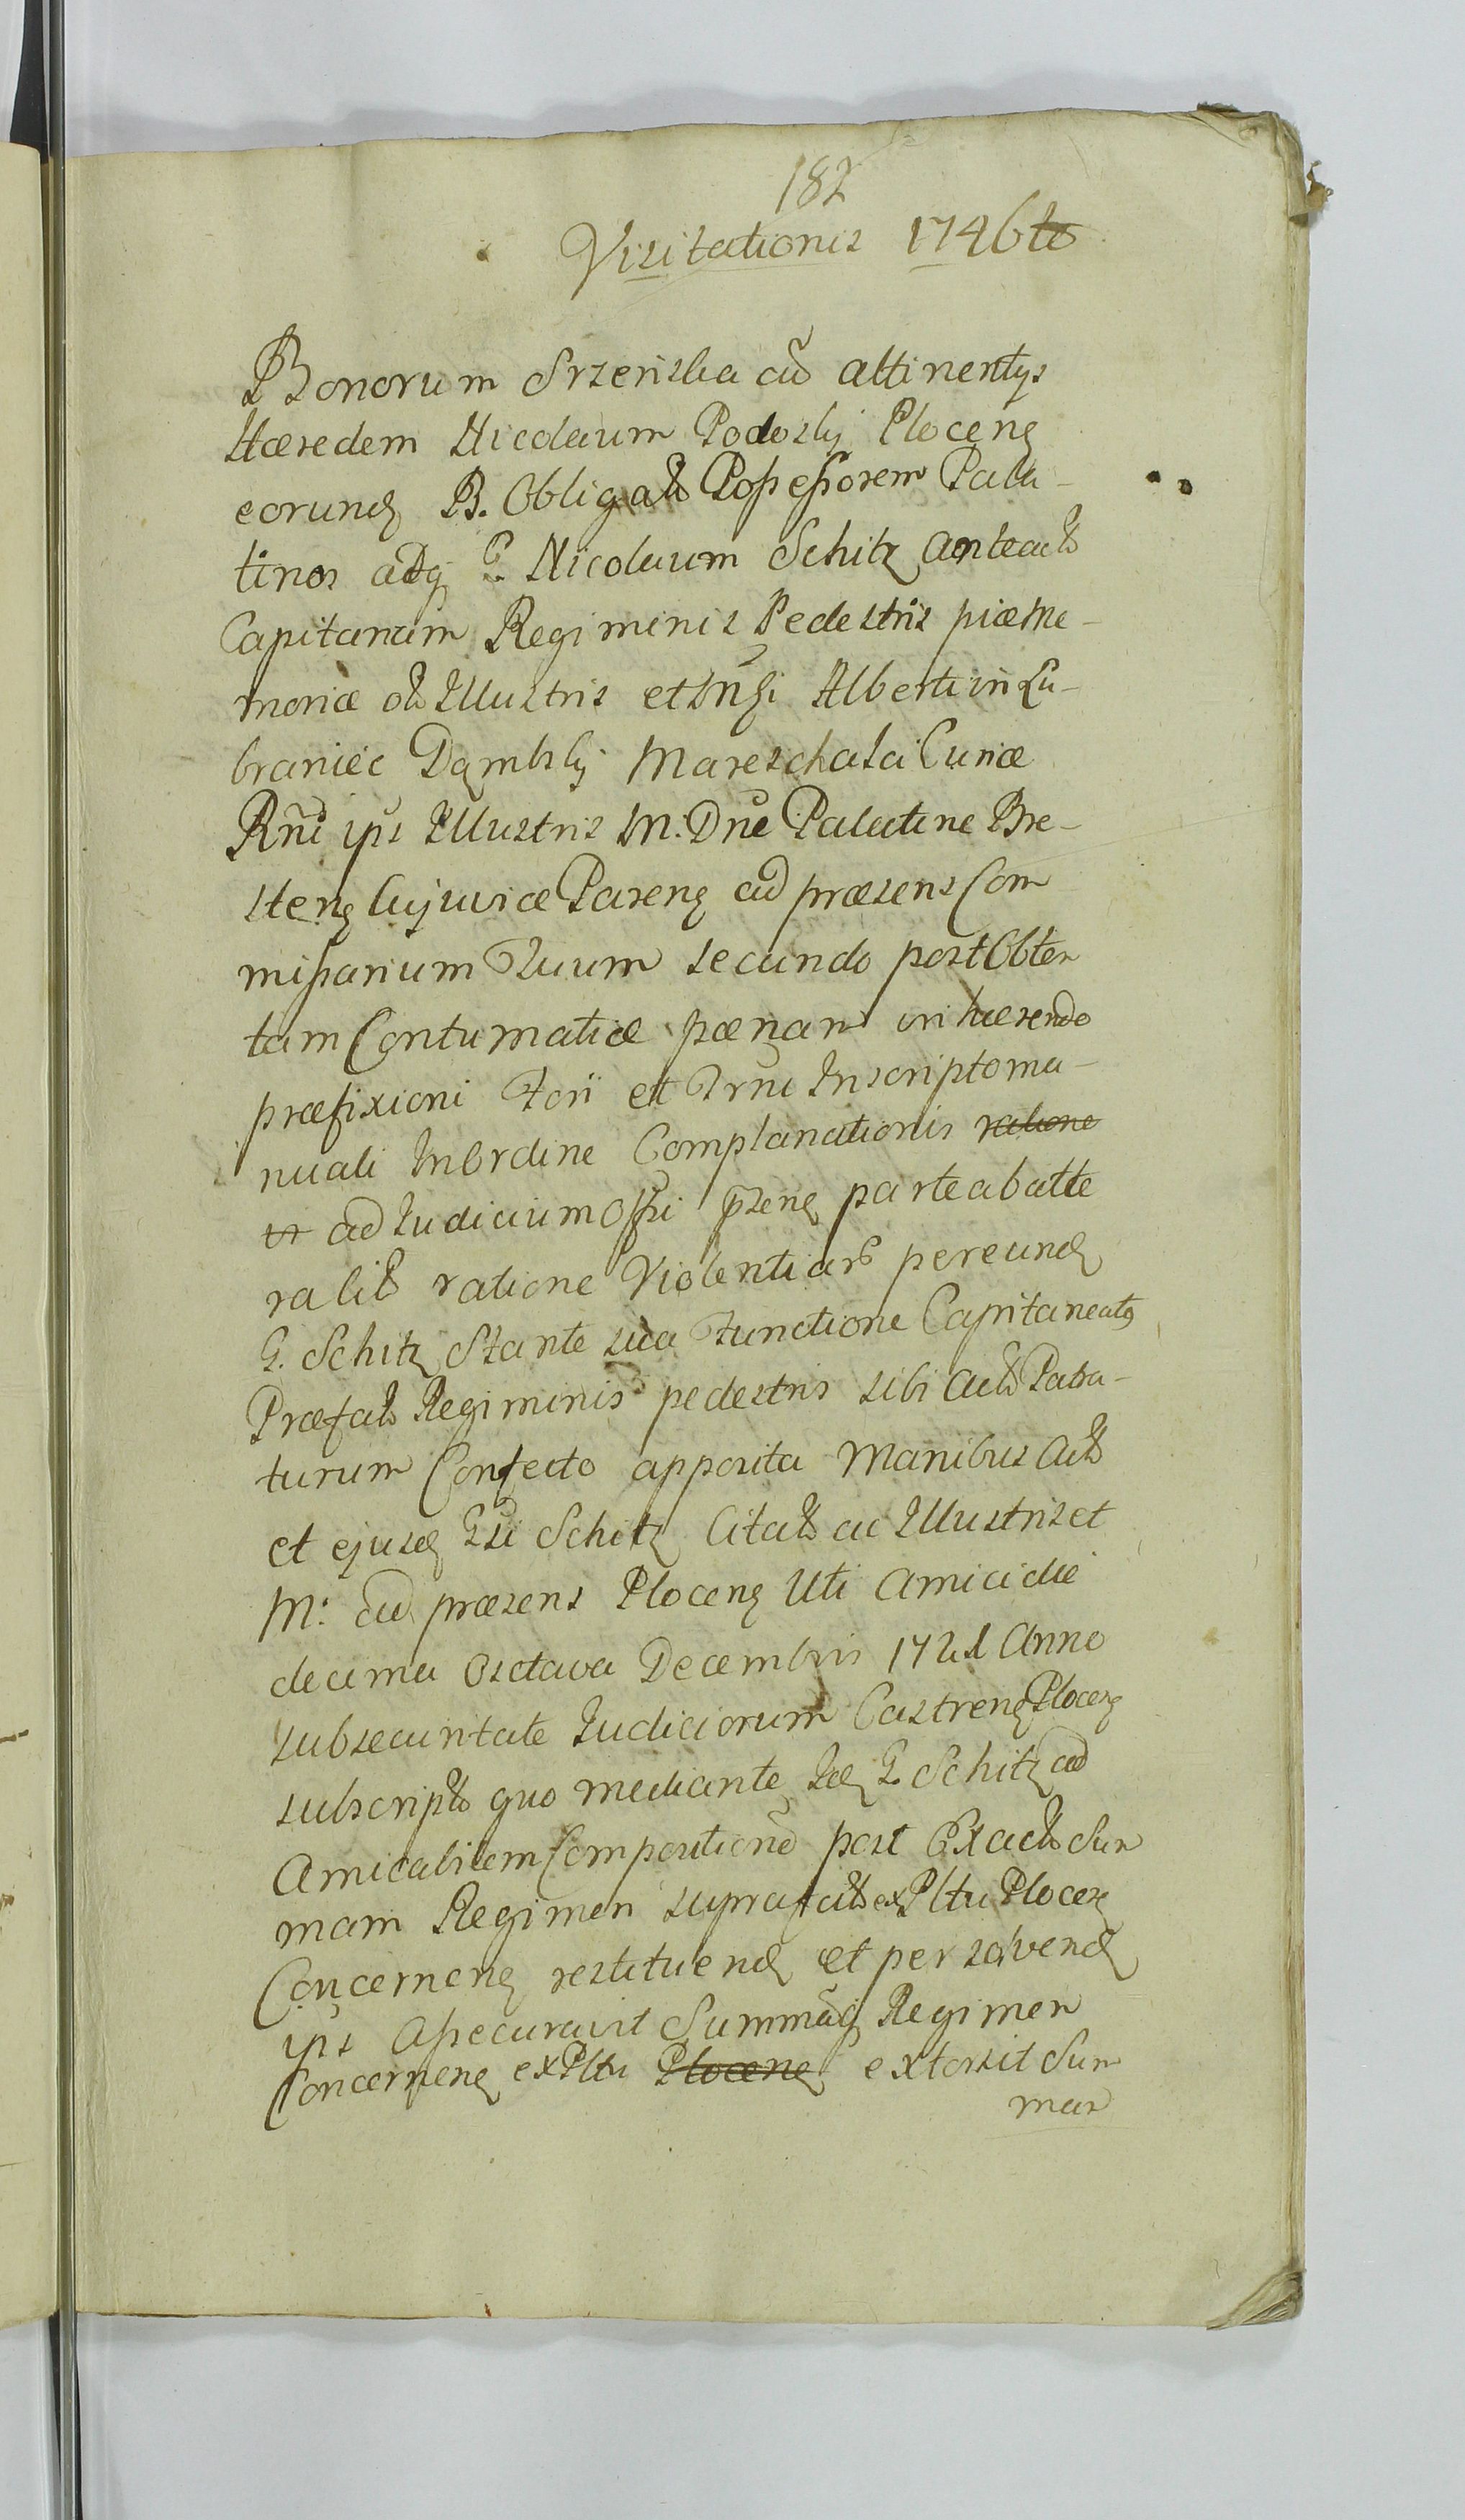 182
Visitationis 1746to
Bonorum Srzenska cũ attinentijs
Hæredem Nicolaum Podoski Plocen
eorund B. Obligat Possessorem Pala-
tinos adq G. Nicolaum Schitz anteact
Capitanum Regiminis Pedestris piæ Me-
moriæ ol Illustris et Mgfi Alberti in Lu-
braniec Dąmbski Mareschalci Curiæ
Rni ips Illustris M. Dne Palatine Bre-
sten Cujaviæ Paren ad præsens Com
missarium Suum secundo post Obten
tam Contumatiæ pænam inhærendo
præfixioni Fori et Trni Inscripto ma-
nuali In Ordine Complanationis ratione
ad Iudicium Offi psen parte ab alte
ralit ratione Violentiar per eund
G. Schitz Stante sua Functione Capitaneat
Præfat Regiminis pedestris sibi act Patra-
turum Confecto apposita Manibus Act
et ejusd Gsi Schitz Citat ac Illustris et
M: ad præsens Plocen Uti Amici die
decima Octava Decembris 1721 Anno
subsecuntate Iudiciorum Castren Plocen
subscript quo mediante Id G. Schitz ad
Amicabilem Compositionẽ post Exact Sum
mam Regimen suprafat ex Pltu Plocen
Concernen restituend et persolvend
ips Assecuravit Summaq Regimen
Concernen ex Pltu Plocen extorsit Sum
mam